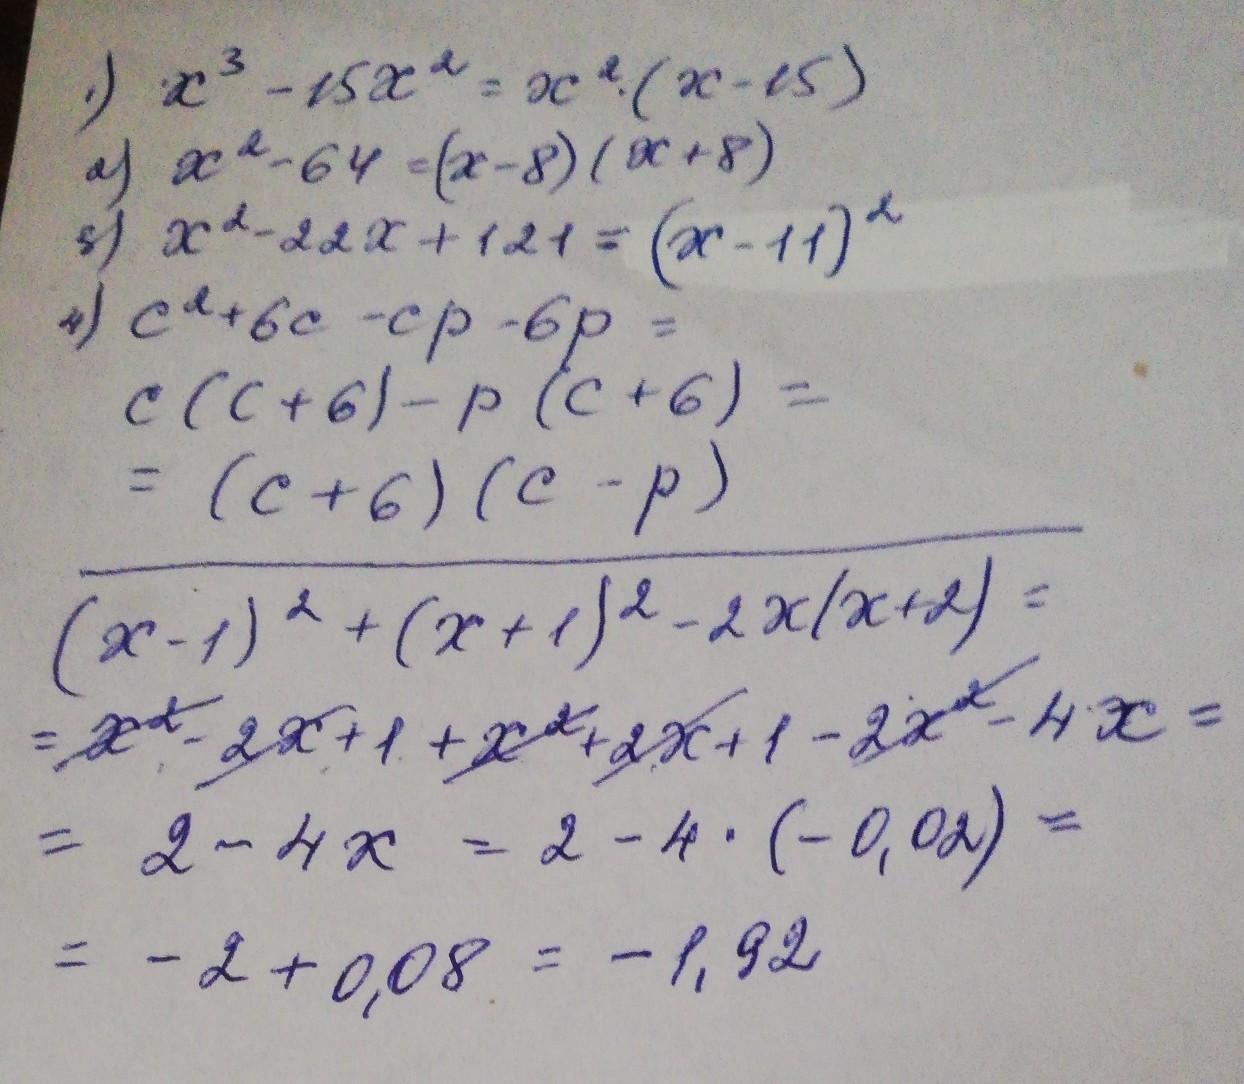 1) x³ - 15x² = x² · (x - 15)
2) x² - 64 = (x - 8) (x + 8)
3) x² - 22x + 121 = (x - 11)²
4) c² + 6c - cp - 6p =
c (c + 6) - p (c + 6) =
= (c + 6) (c - p)
(x - 1)² + (x + 1)² - 2x(x + 2) =
= x² - 2x + 1 + x² + 2x + 1 - 2x² - 4x =
= 2 - 4x = 2 - 4 · (-0,02) =
= -2 + 0,08 = -1,92